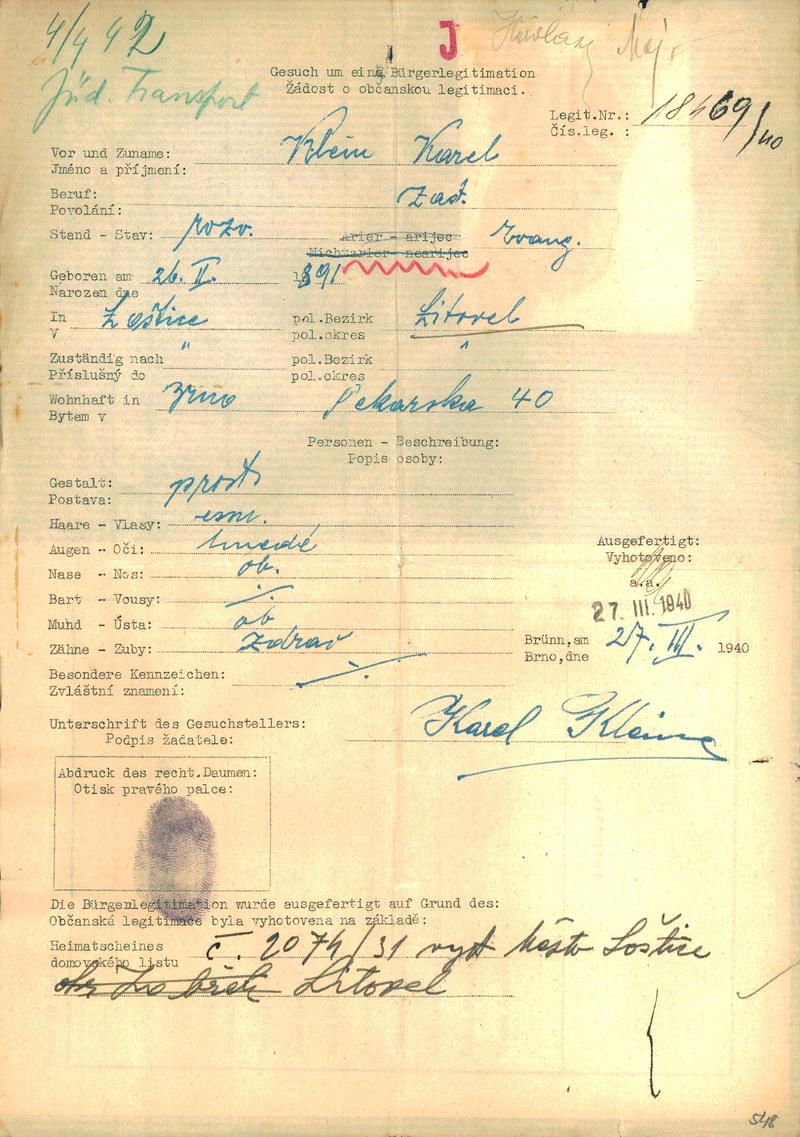 4/4 42
J
Jüd. Transport
Gesuch um eine Bürgerlegitimation
Žádost o občanskou legitimaci.
Legit.Nr.: 18469/40
Čís.leg. :
Vor und Zuname: Klein Karel
Jméno a příjmení:
Beruf: zast.
Povolání:
Stand - Stav: rozv. Arier - arijec Evang.
Nichtarier - nearijec
Geboren am 26. II. 1891
Narozen dne
In Loštice pol.Bezirk Litovel
V pol.okres
Zuständig nach " pol.Bezirk "
Příslušný do pol.okres
Wohnhaft in Brno Pekařská 40
Bytem v
Personen - Beschreibung:
Popis osoby:
Gestalt: prost.
Postava:
Haare - Vlasy:
Augen - Oči: hnědé
Nase - Nos: ob.
Bart - Vousy: ./.
Mund - Ústa: ob
Zähne - Zuby: zdrav
Besondere Kennzeichen: ./.
Zvláštní znamení:
Ausgefertigt:
Vyhotoveno:
a.a.
27. III. 1940
Brünn,am 27. III. 1940
Brno,dne
Unterschrift des Gesuchstellers: Karel Klein
Podpis žadatele:
Abdruck des recht.Daumen:
Otisk pravého palce:
Die Bürgenlegitimation wurde ausgefertigt auf Grund des:
Občanská legitimace byla vyhotovena na základě:
Heimatscheines č. 2074/31 vyd město Loštice
domovského listu
Litovel
548